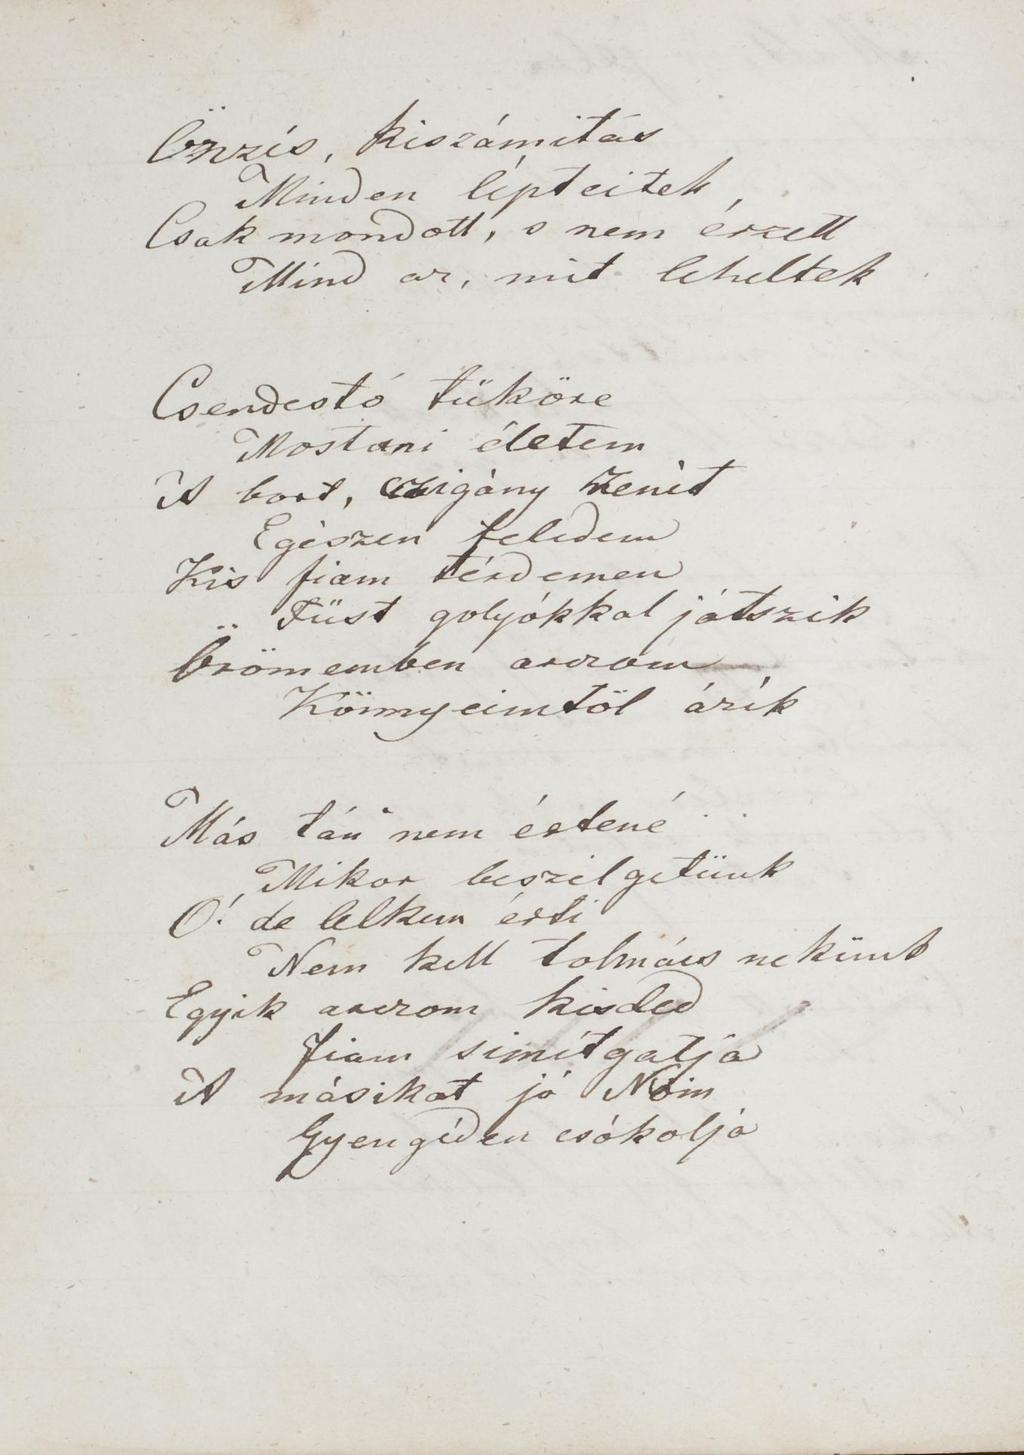 Önzés, kiszámitás
Minden lépteitek,
Csak mondott, s nem érzett
Mind az, mit leheltek.
Csendestó tüköre
Mostani életem
A bort, czigány zenét
Egészen feledem
Kis fiam térdemen
Füst golyókkal játszik
Örömemben arczom
Könnyeimtöl ázik
Más tán nem értené
Mikor beszélgetünk
O! de lelkem érti
Nem kell tolmács nekünk
Egyik arczom kisded
Fiam simítgatja
A másikat jó Nöm
Gyengéden csókolja